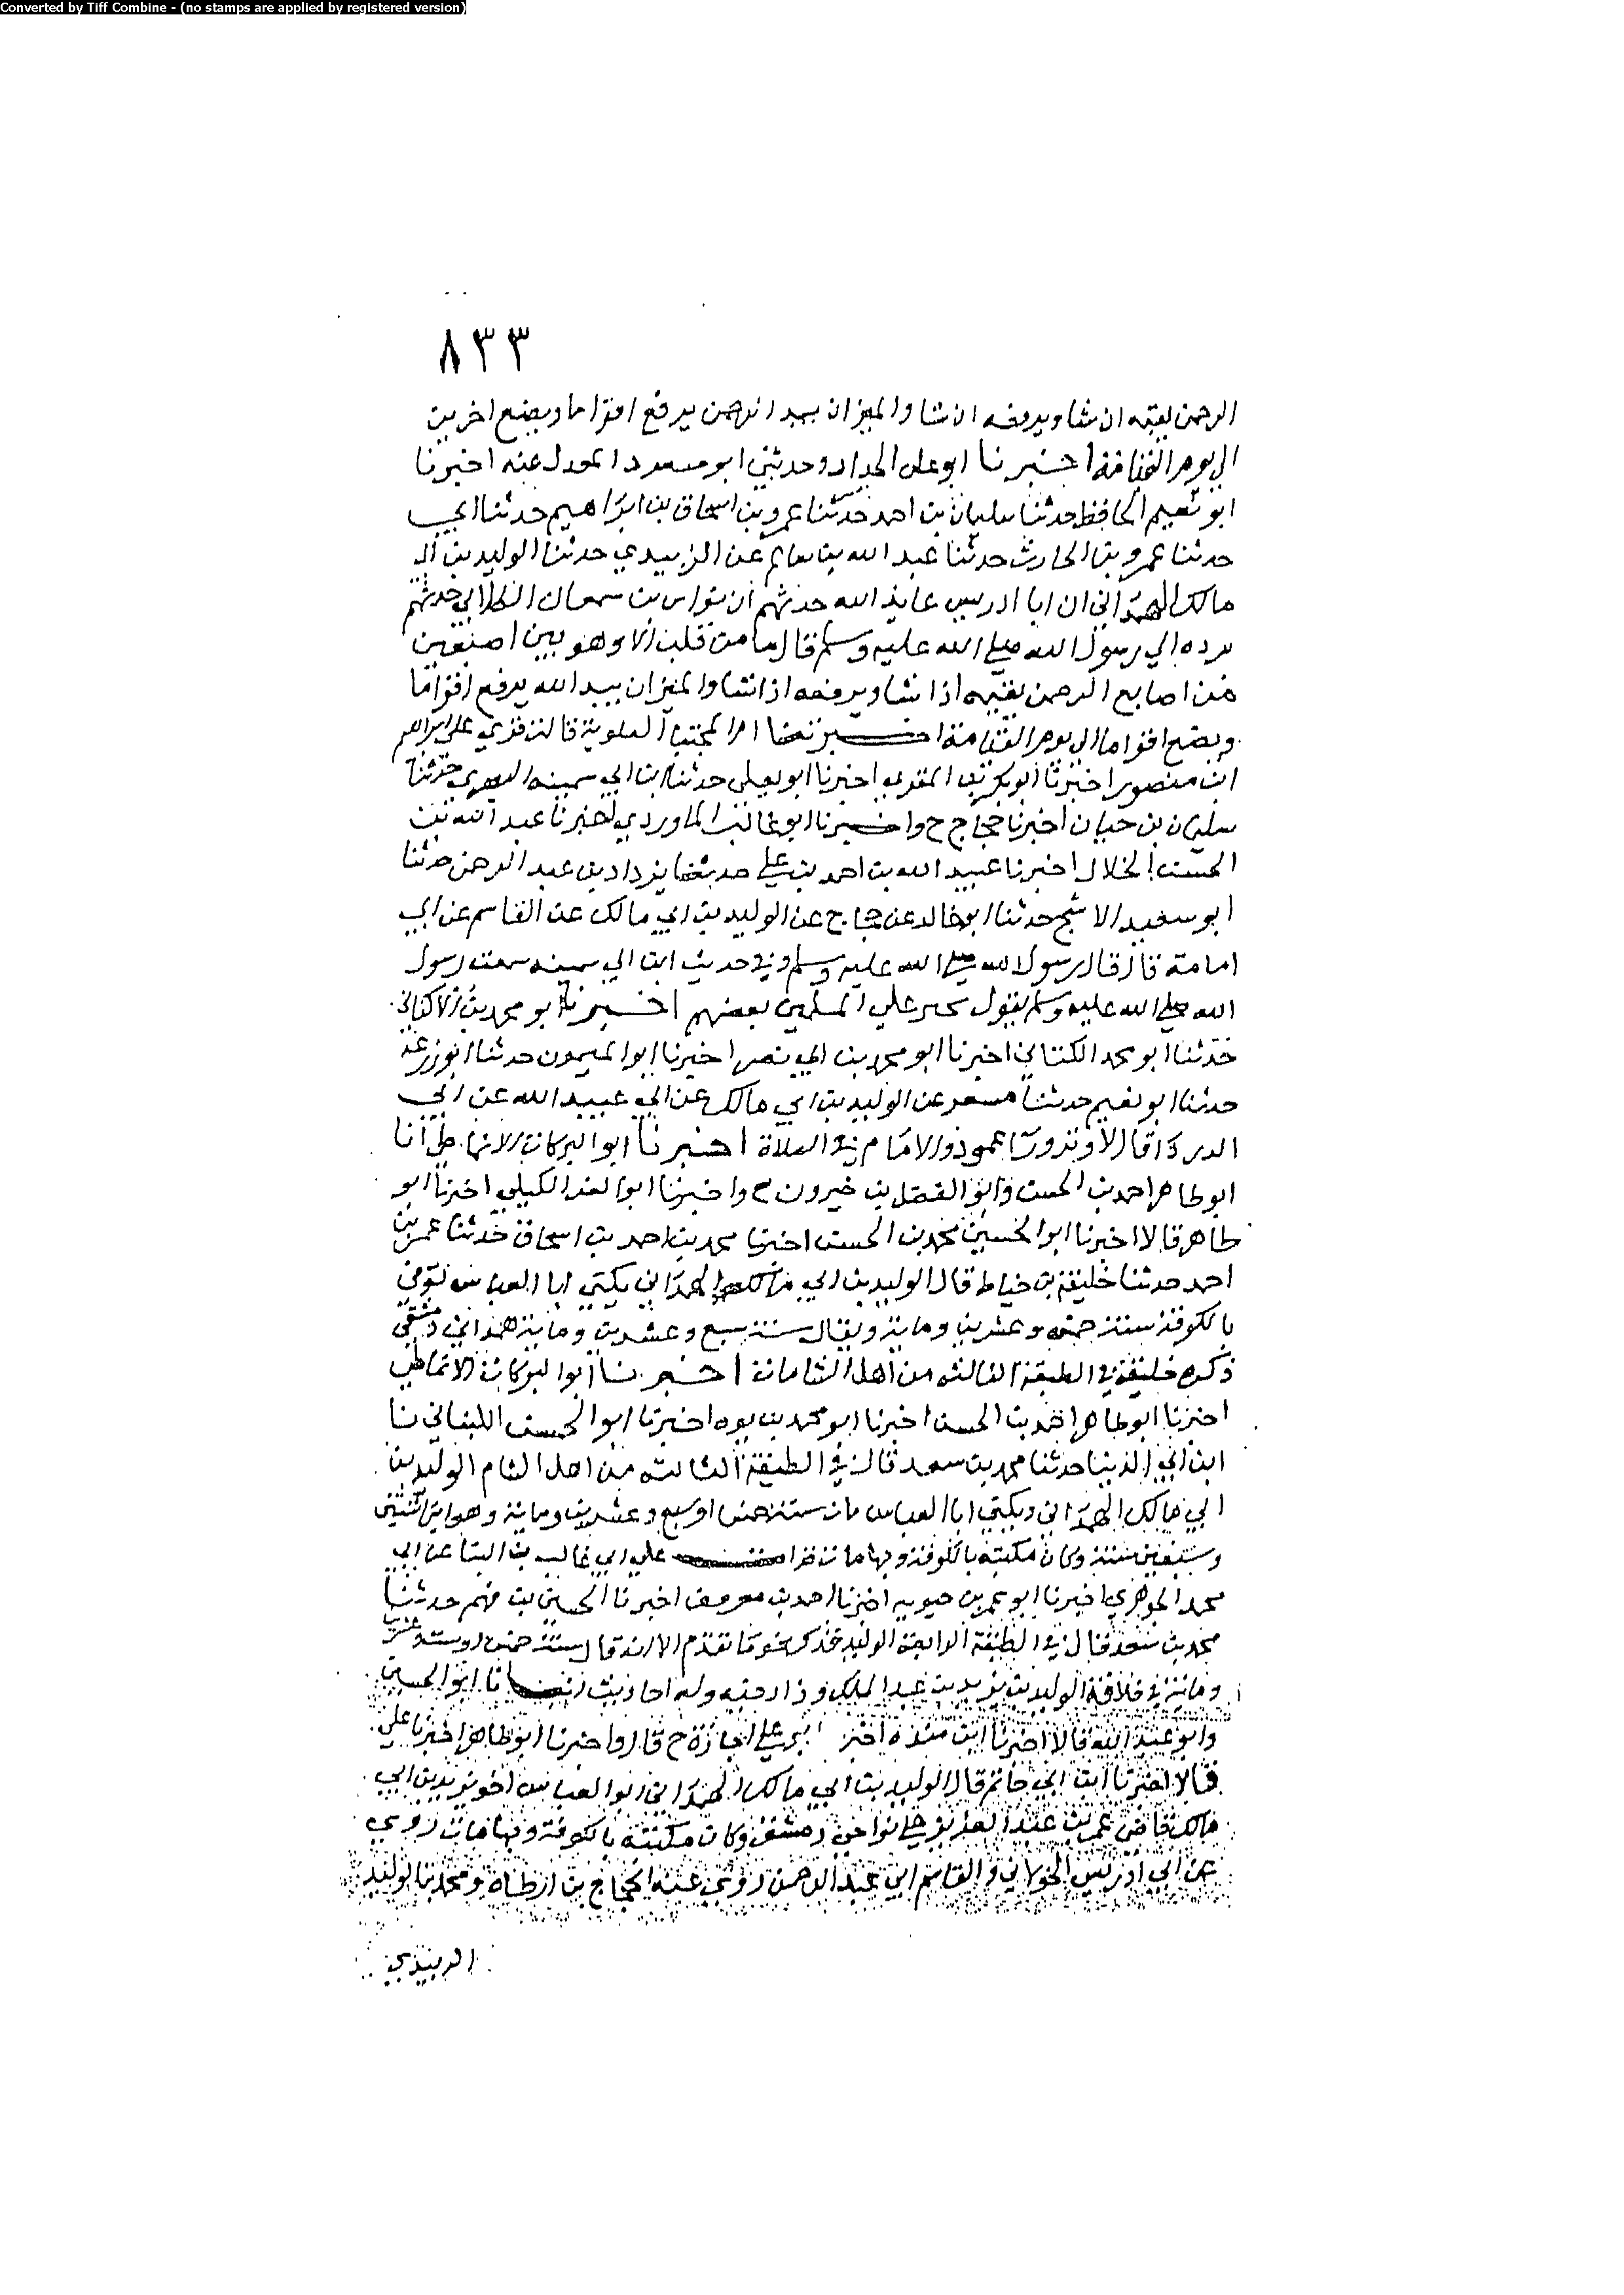 Converted by Tiff Combine - (no stamps are applied by registered version)
٨٣٣
الرحمن يقيمه ان شا ويزيغه ان شا والميزان بيد الرحمن يرفع اقواما ويضع اخرين
الى يوم القيامة اخبرنا ابو على الحداد وحدثني ابو مسعود المعدل عنه اخبرنا
ابو نعيم الحافظ حدثنا سليمان بن احمد حدثنا عمرو بن اسحاق بن ابراهيم حدثنا ابي
حدثنا عمرو بن الحارث حدثنا عبد الله بن سالم عن الزبيدي حدثنا الوليد بن ابي
مالك الهمداني ان ابا ادريس عايذ الله حدثهم ان نواس بن سمعان الكلابي حدثهم
يرده الي رسول الله صلى الله عليه وسلم قال ما من قلب الا وهو بين اصبعين
من اصابع الرحمن يقيمه اذا شا ويزيغه اذا شا والميزان بيد الله يرفع اقواما
ويضع اقواما الى يوم القيامة اخبرتنا ام المجتبا العلوية قالت قري على ابراهيم
ابن منصور اخبرنا ابو بكر بن المقري اخبرنا ابو يعلى حدثنا ابن ابي سمينه البصري حدثنا
سليمان بن حيان اخبرنا حجاج ح واخبرنا ابو غالب الماوردي اخبرنا عبد الله بن
الحسن الخلال اخبرنا عبيد الله بن احمد بن علي حدثنا يزداد بن عبد الرحمن حدثنا
ابو سعيد الاشج حدثنا ابو خالد عن حجاج عن الوليد بن ابي مالك عن القاسم عن ابي
امامة قال قال رسول الله صلى الله عليه وسلم وفي حديث ابن ابي سمينه سمعت رسول
الله صلى الله عليه وسلم يقول يجير علي المسلمين بعضهم اخبرنا ابو محمد بن الاكفاني
حدثنا ابو محمد الكتاني اخبرنا ابو محمد بن ابي نصر اخبرنا ابو الميمون حدثنا ابو زرعة
حدثنا ابو نعيم حدثنا مسعر عن الوليد بن ابي مالك عن ابي عبيد الله عن ابي
الدردا قال الاوتدون عمود والامام في الصلاة اخبرنا ابو البركات الانماطي انا
ابو طاهر احمد بن الحسن وابو الفضل بن خيرون ح واخبرنا ابو العز الكيلي اخبرنا ابو
طاهر قالا اخبرنا ابو الحسين محمد بن الحسن اخبرنا محمد بن احمد بن اسحاق حدثنا عمر بن
احمد حدثنا خليفة بن خياط قال الوليد بن ابي مالك الهمداني يكني ابا العباس توفي
بالكوفة سنة خمس وعشرين وماية ويقال سنة سبع وعشرين وماية همداني دمشقي
ذكره خليفة في الطبقة الثالثه من اهل الشامات اخبرنا ابو البركات الانماطي
اخبرنا ابو طاهر احمد بن الحسن اخبرنا ابو محمد بن يوه اخبرنا ابو الحسن اللبناني نا
ابن ابي الدنيا حدثنا محمد بن سعد قال في الطبقة الثالثه من اهل الشام الوليد بن
ابي مالك الهمداني ويكني ابا العباس مات سنة خمس او سبع وعشرين وماية وهو ابن اثنتين
وسبعين سنة وكان مكتبه بالكوفة وبها مات قرات علي ابي غالب بن البنا عن ابي
محمد الجوهري اخبرنا ابو عمر بن حيويه اخبرنا احمد بن معروف اخبرنا الحسين بن فهم حدثنا
محمد بن سعد قال في الطبقة الرابعة الوليد فذكر نحو ما تقدم الا انه قال سنة خمس او ست وعشرين
وماية في خلافة الوليد بن يزيد بن عبد الملك وزاد فيه وله احاديث انبانا ابو الحسين
وابو عبد الله قالا اخبرنا ابن منده اخبرنا ابو علي اجازة ح قال واخبرنا ابو طاهر اخبرنا علي
قالا اخبرنا ابن ابي حاتم قال الوليد بن ابي مالك الهمداني ابو العباس اخو يزيد بن ابي
مالك قاضي عمر بن عبد العزيز على نواحي دمشق وكان مكتبه بالكوفة وبها مات روي
عن ابي ادريس الخولاني والقاسم ابي عبد الرحمن روى عنه الحجاج بن ارطاة ومحمد بن الوليد
الزبيدي